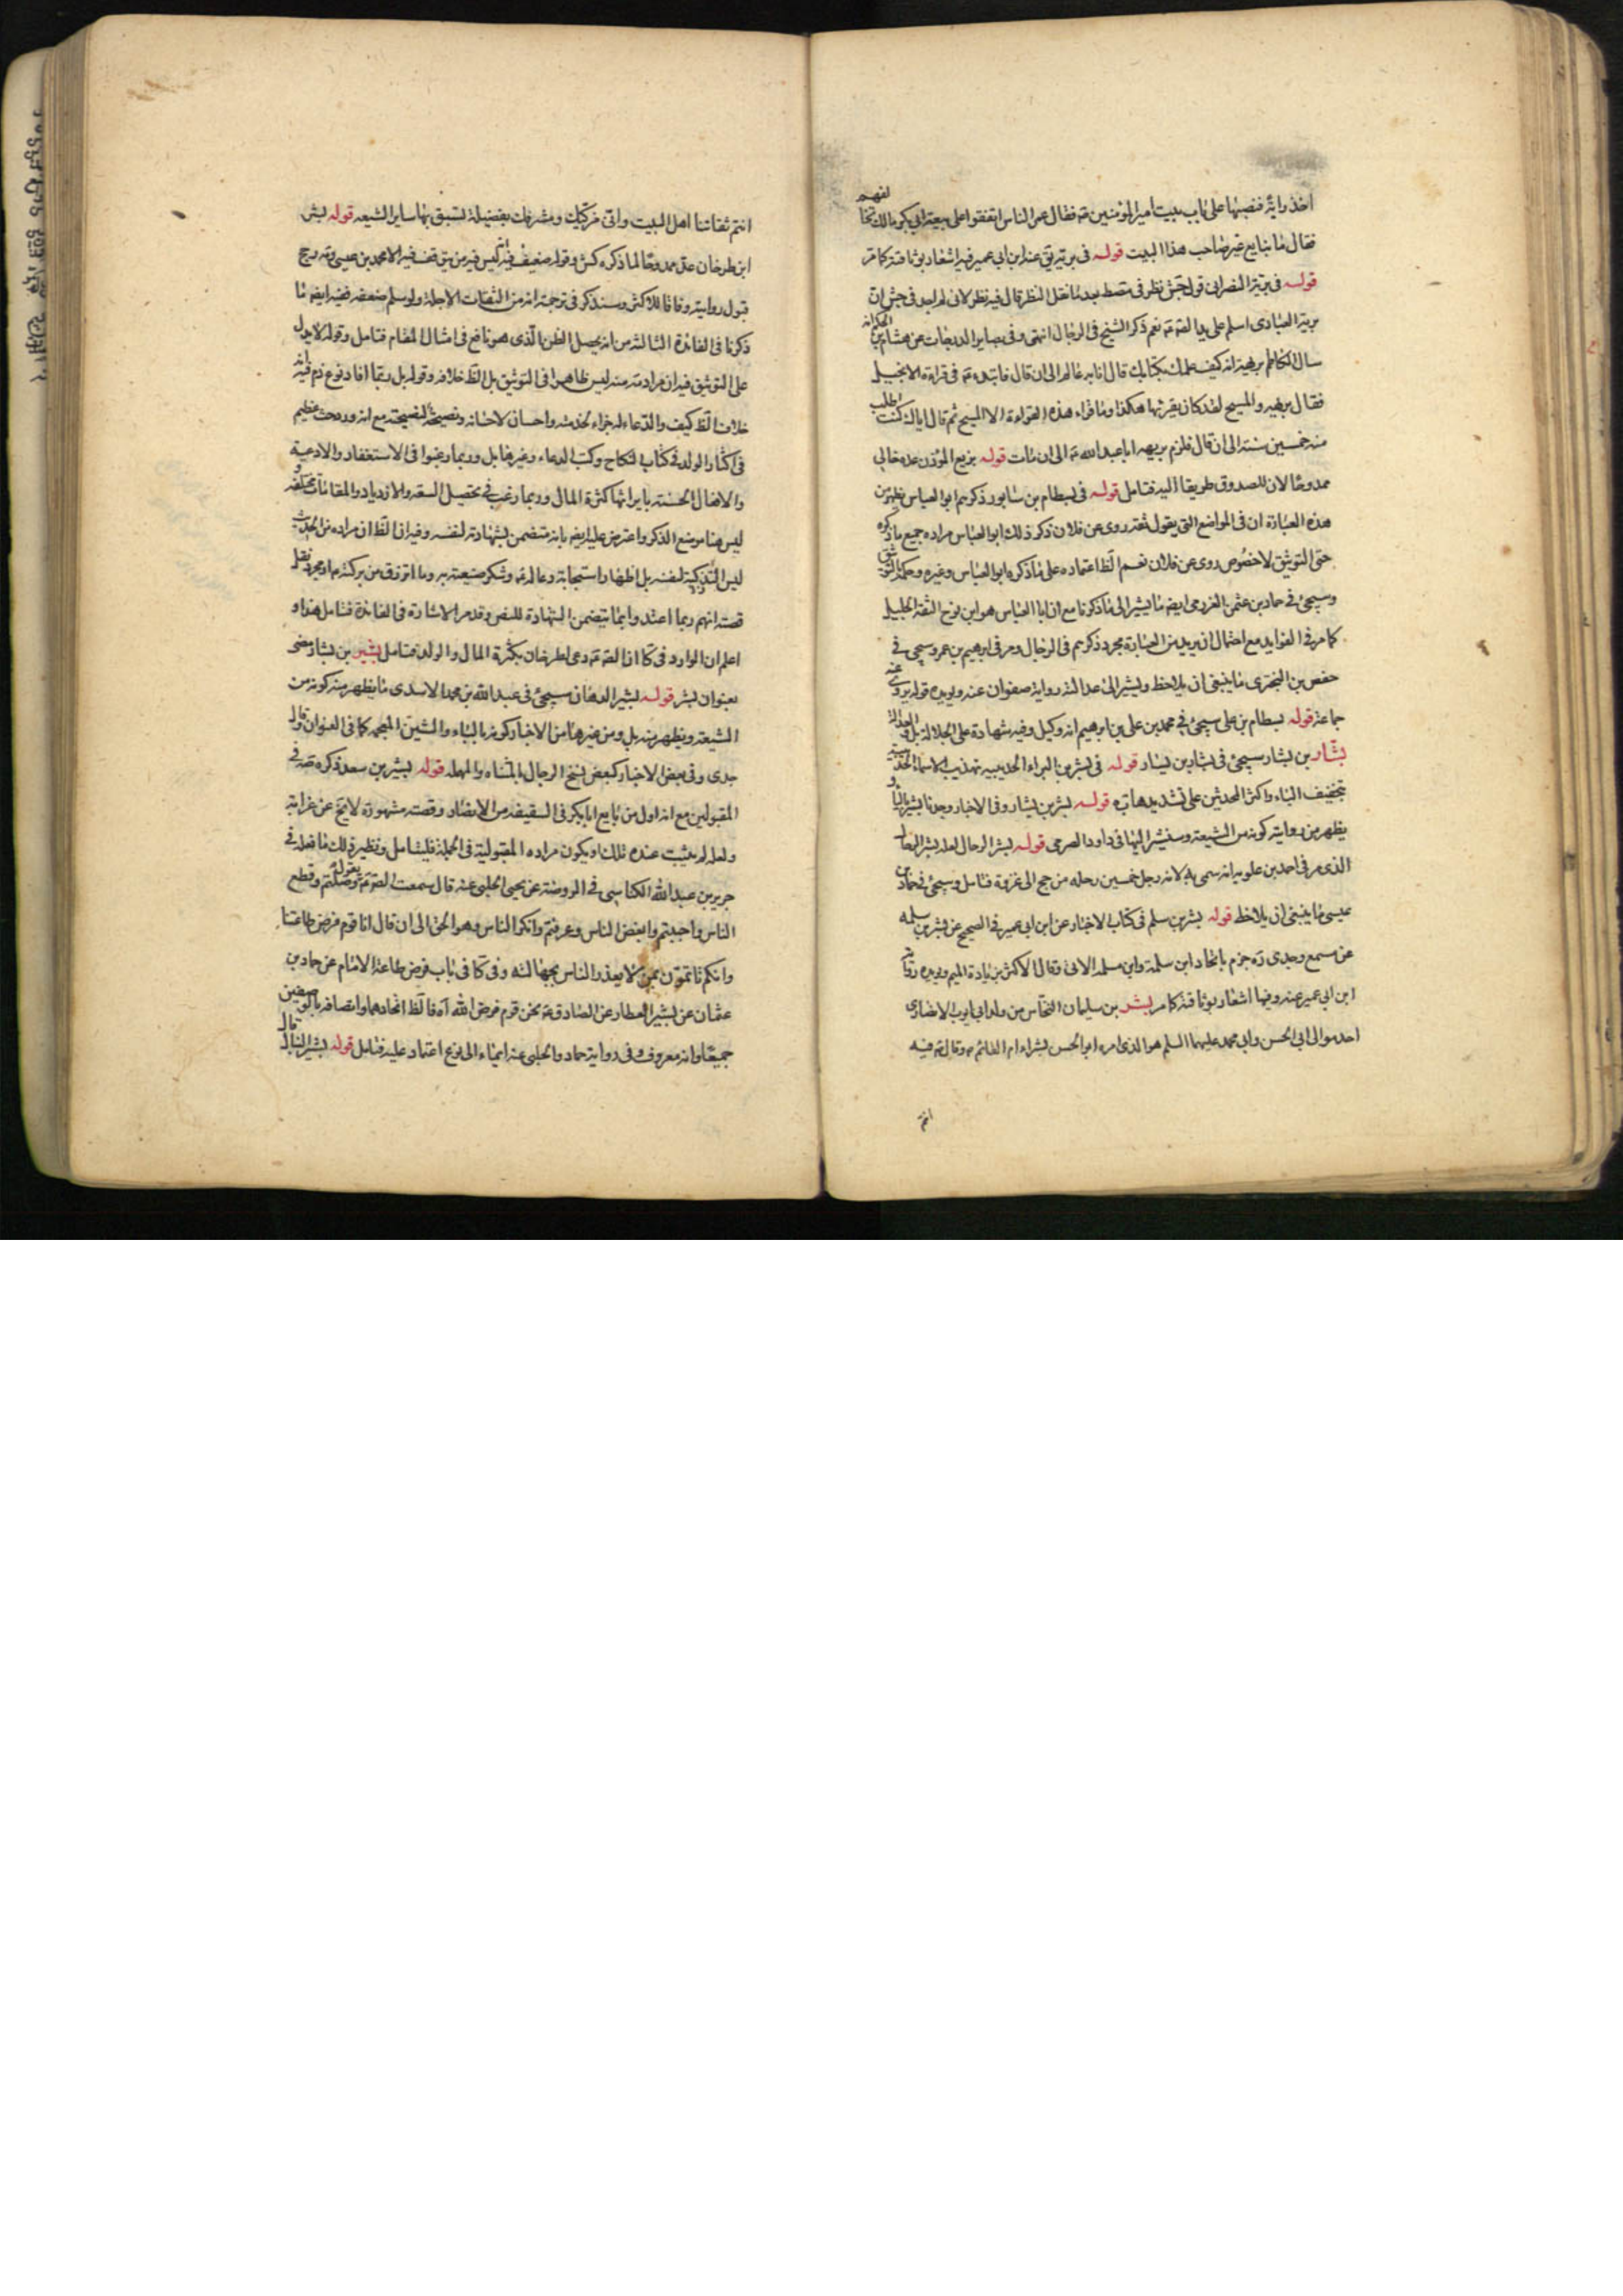 اخذ راية فنصبها على باب بيت امير المؤمنين ع فقال عمر الناس اتفقوا على بيعة ابي بكر مالك تخالفهم
فقال ما نبايع غير صاحب هذا البيت قوله في برتيه يق عند ابن ابي عمير فيه اشعار بوثاقته كما مر
قوله في بريه النصراني قول جش نظر في متصط بعد ما نقل النظر قال فيه نظر لاني لم اجد في جش ان
بريه العبادي اسلم على يد الصه ع نعم ذكر الشيخ في الرجال انتهى وفي بصاير الدرجات عن هشام بن الحكم انه
سال الكاظم بريهة انه كيف علمك بكتابك قال انا به عالم الى ان قال فابتدء ع في قراءة الانجيل
فقال بريهه والمسيح لقد كان يقرئها هكذا وما قراء هذه القراءة الا المسيح ثم قال اياك كنت اطلب
منه خمسين سنة الى ان قال فلزم بريهه ابا عبد الله ع الى ان مات قوله بزيع المؤذن عده خالي
ممدوحا لان للصدوق طريقا اليه فتامل قوله في بسطام بن سابور ذكرهم ابو العباس يظهر من
هذه العبارة ان في المواضع التي يقول ثقة روى عن فلان ذكر ذلك ابو العباس مراده جميع ما ذكره
حتى التوثيق لا خصوص روى عن فلان نعم الظ اعتماده على ما ذكره ابو العباس وغيره وحكمه بالتوثيق
وسيجئ في حماد بن عثمن الفزدمي ايضه ما يشير الى ما ذكرنا مع ان ابا العباس هو ابن نوح الثقة الجليل
كما مر في الفوايد مع احتمال ان يريد من العبارة مجرد ذكرهم في الرجال ومر في ابراهيم بن عمر وسيجئ في
حفص بن البختري ما ينبغي ان يلاحظ ويشير الى عدالته رواية صفوان عنه ويؤيده قوله يروي عنه
جماعة قوله بسطام بن علي سيجئ في محمد بن علي بن ابراهيم انه وكيل وفيه شهادة على الجلالة بل والعدالة
بشار بن بشار سيجئ في بشار بن يسار قوله في بشر بن البراء الحديبيه تهذيب الاسماء الحديبية
بتخفيف الياء واكثر المحدثين على تشديدها قوله بشر بن بشار وفي الاخبار وجدنا بشير بالياء و
يظهر من رواياته كونه من الشيعة وسنشير اليها في داود الصرمي قوله بشر الرحال لعله بشر الرحال
الذي مر في احمد بن علويه انه سمي به لانه رحل خمسين رحله من حج الى غزوة فتامل وسيجئ في حماد بن
عيسى ما ينبغي ان يلاحظ قوله بشر بن سلم في كتاب الاخبار عن ابن ابي عمير في الصحيح عن بشر بن سلمه
عن مسمع وجدي ره جزم باتحاد ابن سلمة وابن مسلمه الاتي وقال الاكثر بزيادة الميم ويؤيده رواية
ابن ابي عمير عنه وفيها اشعار بوثاقته كما مر بشر بن سليمان النخاس من ولد ابي ايوب الانصاري
احد موالي ابي الحسن وابي محمد عليهما السلم هو الذي امره ابو الحسن بشراء ام القائم ع وقال ع فيه
انتم
انتم ثقاتنا اهل البيت واني مزكيك ومشرفك بفضيلة تسبق بها ساير الشيعه قوله بشر
ابن طرخان عد ممدوحا لما ذكره كش وقوله ضعيف فيه انه ليس فيه من يتوقف فيه الا محمد بن عيسى وقد رجح
قبول روايته وفاقا للاكثر وسنذكر في ترجمته انه من الثقات الاجلة ولو سلم ضعفه ففيه ايضه ما
ذكرنا في الفائدة الثالثة من انه يحصل الظن بالذي هو نافع في امثال المقام فتامل وقوله لا يدل
على التوثيق فيه ان مراده منه ليس ظاهرا في التوثيق بل الظ خلافه وقوله بل ربما افاد نوع ذم فيه انه
خلاف الظ كيف والدعاء له جزاء لخدمته واحسان لاحسانه ونصيحة لنصيحته مع انه ورد حث عظيم
في اكثار الولد في كتاب النكاح وكتب الدعاء وغيرهما بل وربما رغبوا في الاستغفار والادعية
والافعال الحسنة بايراثها كثرة المال وربما رغب في تحصيل السعة والازدياد والمقامات مختلفة
ليس هنا موضع الذكر واعترض عليه ايضه بانه متضمن لشهادته لنفسه وفيه ان الظ ان مراده من الحديث
ليس التزكية لنفسه بل اظهار استجابة دعائه ع وشكر صنيعته به وما رزق من بركته ع ومجرد نقل
قصته انهم ربما اعتدوا بما يتضمن الشهادة للنفس وقد مر الاشارة في الفائدة فتامل هذا و
اعلم ان الوارد في كا ان الصه ع دعى لطرخان بكثرة المال والولد فتامل بشير بن بشار مضى
بعنوان بشر قوله بشير الدهان سيجئ في عبد الله بن محمد الاسدي ما يظهر منه كونه من
الشيعة ويظهر منه بل ومن غيرها من الاخبار كونه بالباء والشين المعجمه كما في العنوان قال
جدي وفي بعض الاخبار كبعض نسخ الرجال بالمثناه والمهمله قوله بشير بن سعد ذكره صه في
المقبولين مع انه اول من بايع ابا بكر في السقيفه من الانصار وقصته مشهورة لا يخ عن غرابة
ولعله لم يثبت عنده ذلك او يكون مراده المقبولية في الجملة فليتامل ونظير ذلك ما فعله في
جرير بن عبد الله الكناسي في الروضة عن يحيى الحلبي عنه قال سمعت الصه ع يقول وصلتم وقطع
الناس واحببتم وابغض الناس وعرفتم وانكر الناس وهو الحق الى ان قال انا قوم فرض طاعتنا
وانكم تاتمون بمن لا يعذر الناس بجهالته وفي كا في باب فرض طاعة الامام عن حماد بن
عثمان عن بشير العطار عن الصادق ع نحن قوم فرض الله آه فالظ اتحادهما واتصافه بالوصفين
جميعا وانه معروف وفي رواية حماد والحلبي عنه ايماء الى نوع اعتماد عليه فتامل قوله بشير النبال قال